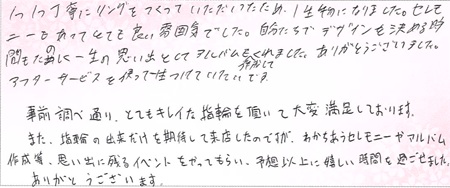 1つ1つ丁寧にリングをつくっていただいたため、1生物になりました。セレモ
ニーもあってとても良い雰囲気でした。自分たちでデザインを決める時
間もた楽しく一生の思い出としてアルバムも作成してくれました。ありがとうございました。
アフターサービスを使って一生つけていたいです。
事前調べ通り、とてもキレイな指輪を頂いて大変満足しております。
また、指輪の出来だけを期待して来店したのですが、わかちあうセレモニーやアルバム
作成等、思い出に残るイベントをやってもらい、予想以上に嬉しい時間を過ごせました。
ありがとうございます。